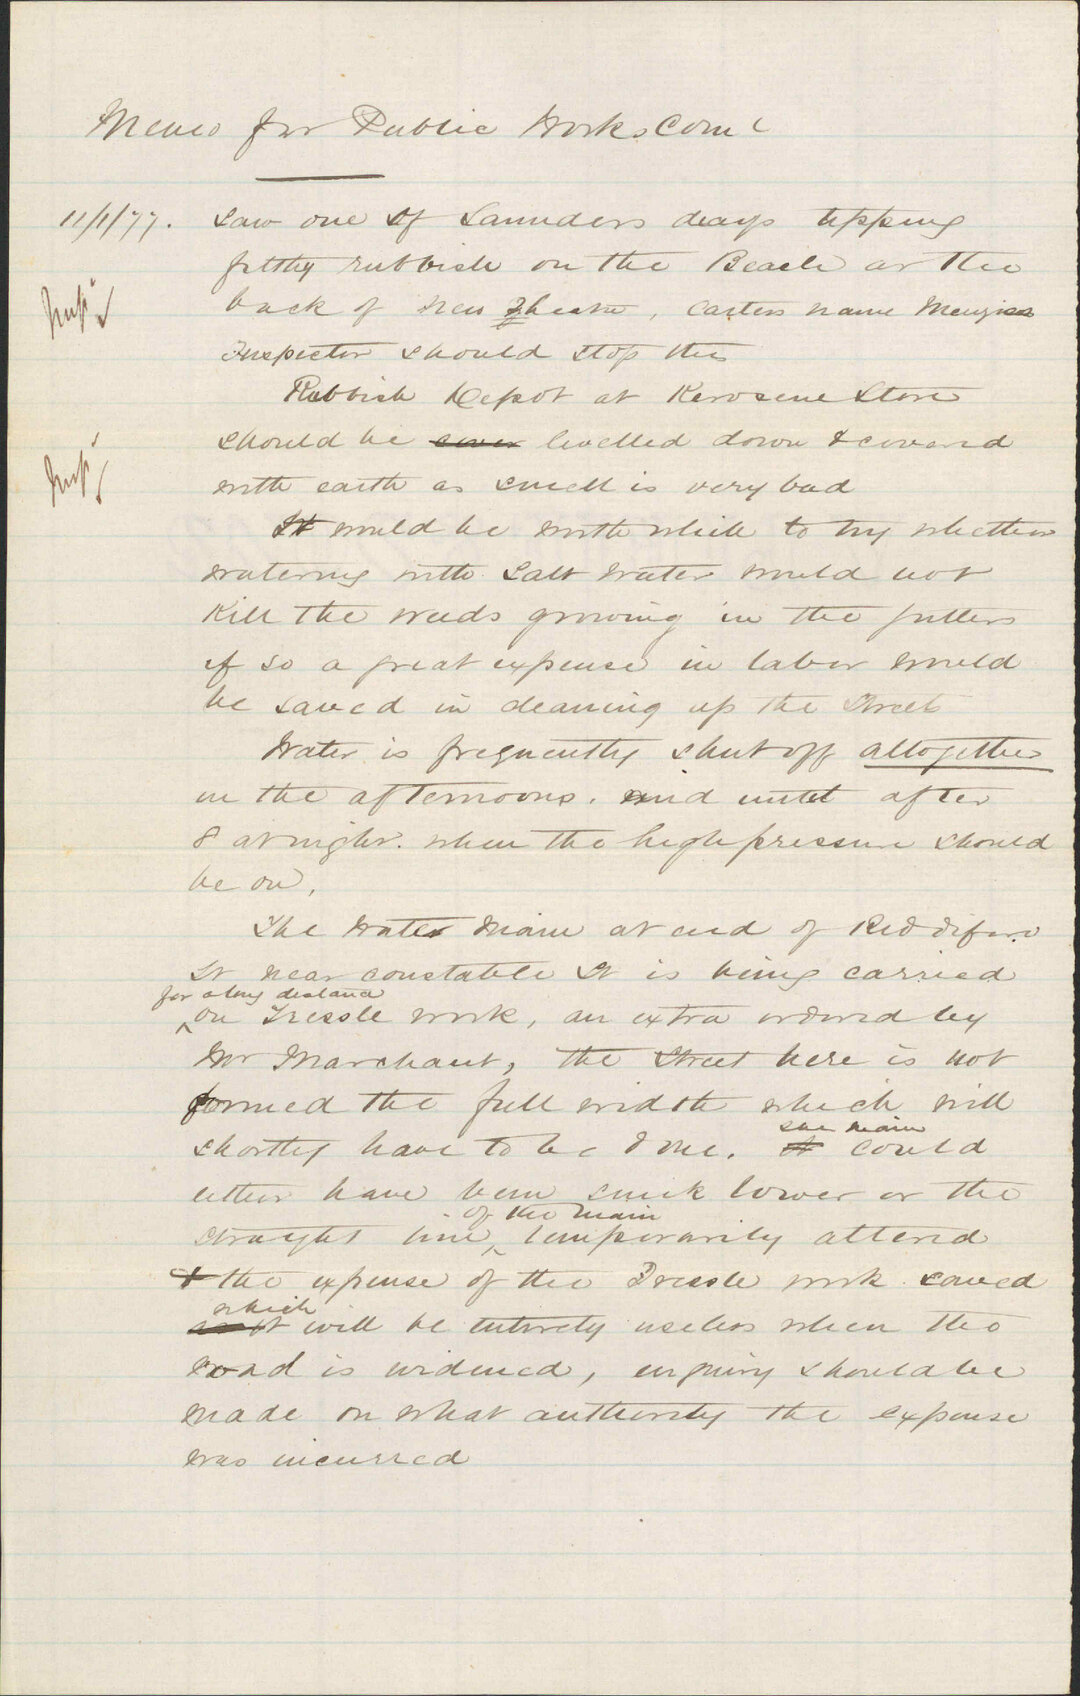 Memo for Public Works Come
11/1/77. Saw one of Saunders drays tipping
filthy rubbish on the Beach at the
Insp.r
back of new Theatre, carters name Menzies
Inspector should stop this
Rubbish Depot at Kerosene Store
should be cover levelled down & covered
Insp.r
with earth as smell is very bad
It would be worth while to try whether
watering with Salt Water would not
Kill the weeds growing in the gutters
if so a great expense in labor would
be saved in cleaning up the Streets
Water is frequently shut off altogether
in the afternoons. and until after
8 at night. when the high pressure should
be on,
The Water Main at end of Riddiford
St near Constable St is being carried
for a long distance
on Tressle work, an extra ordered by
Mr Marchant, the Street here is not
formed the full width which will
shortly have to be done. It could
the main
either have been sunk lower or the
of the main
straight line temporarily altered
& the expense of the Tressle work saved
which
it will be entirely useless when the
road is widened, enquiry should be
made on what authority the expense
was incurred